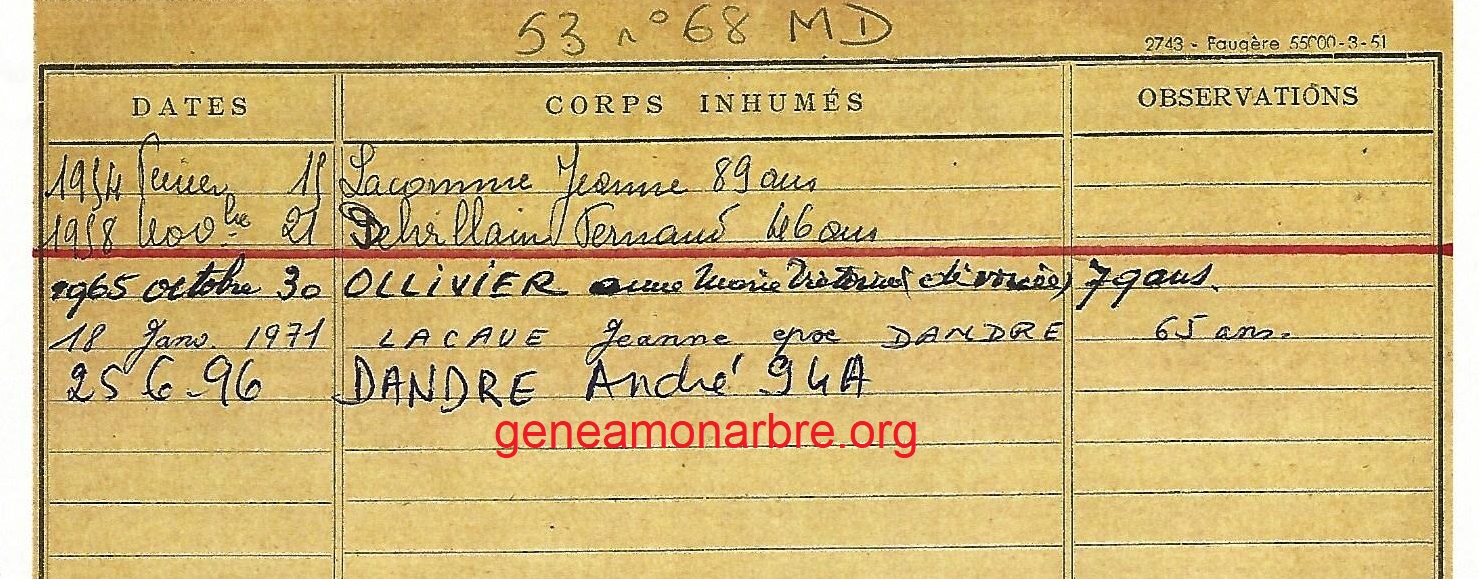 53 n° 68 MD
2743 - Faugère 55000-3-51
DATES CORPS INHUMÉS OBSERVATIONS
1954 février 15 Lacomme Jeanne 89 ans
1958 Novbre 21 Fernand 46 ans
1965 octobre 30 OLLIVIER anne Marie (divorcée) 79 ans.
18 Janv. 1971 LACAVE Jeanne epse DANDRE 65 ans.
25 6-96 DANDRE André 94A
geneamonarbre.org